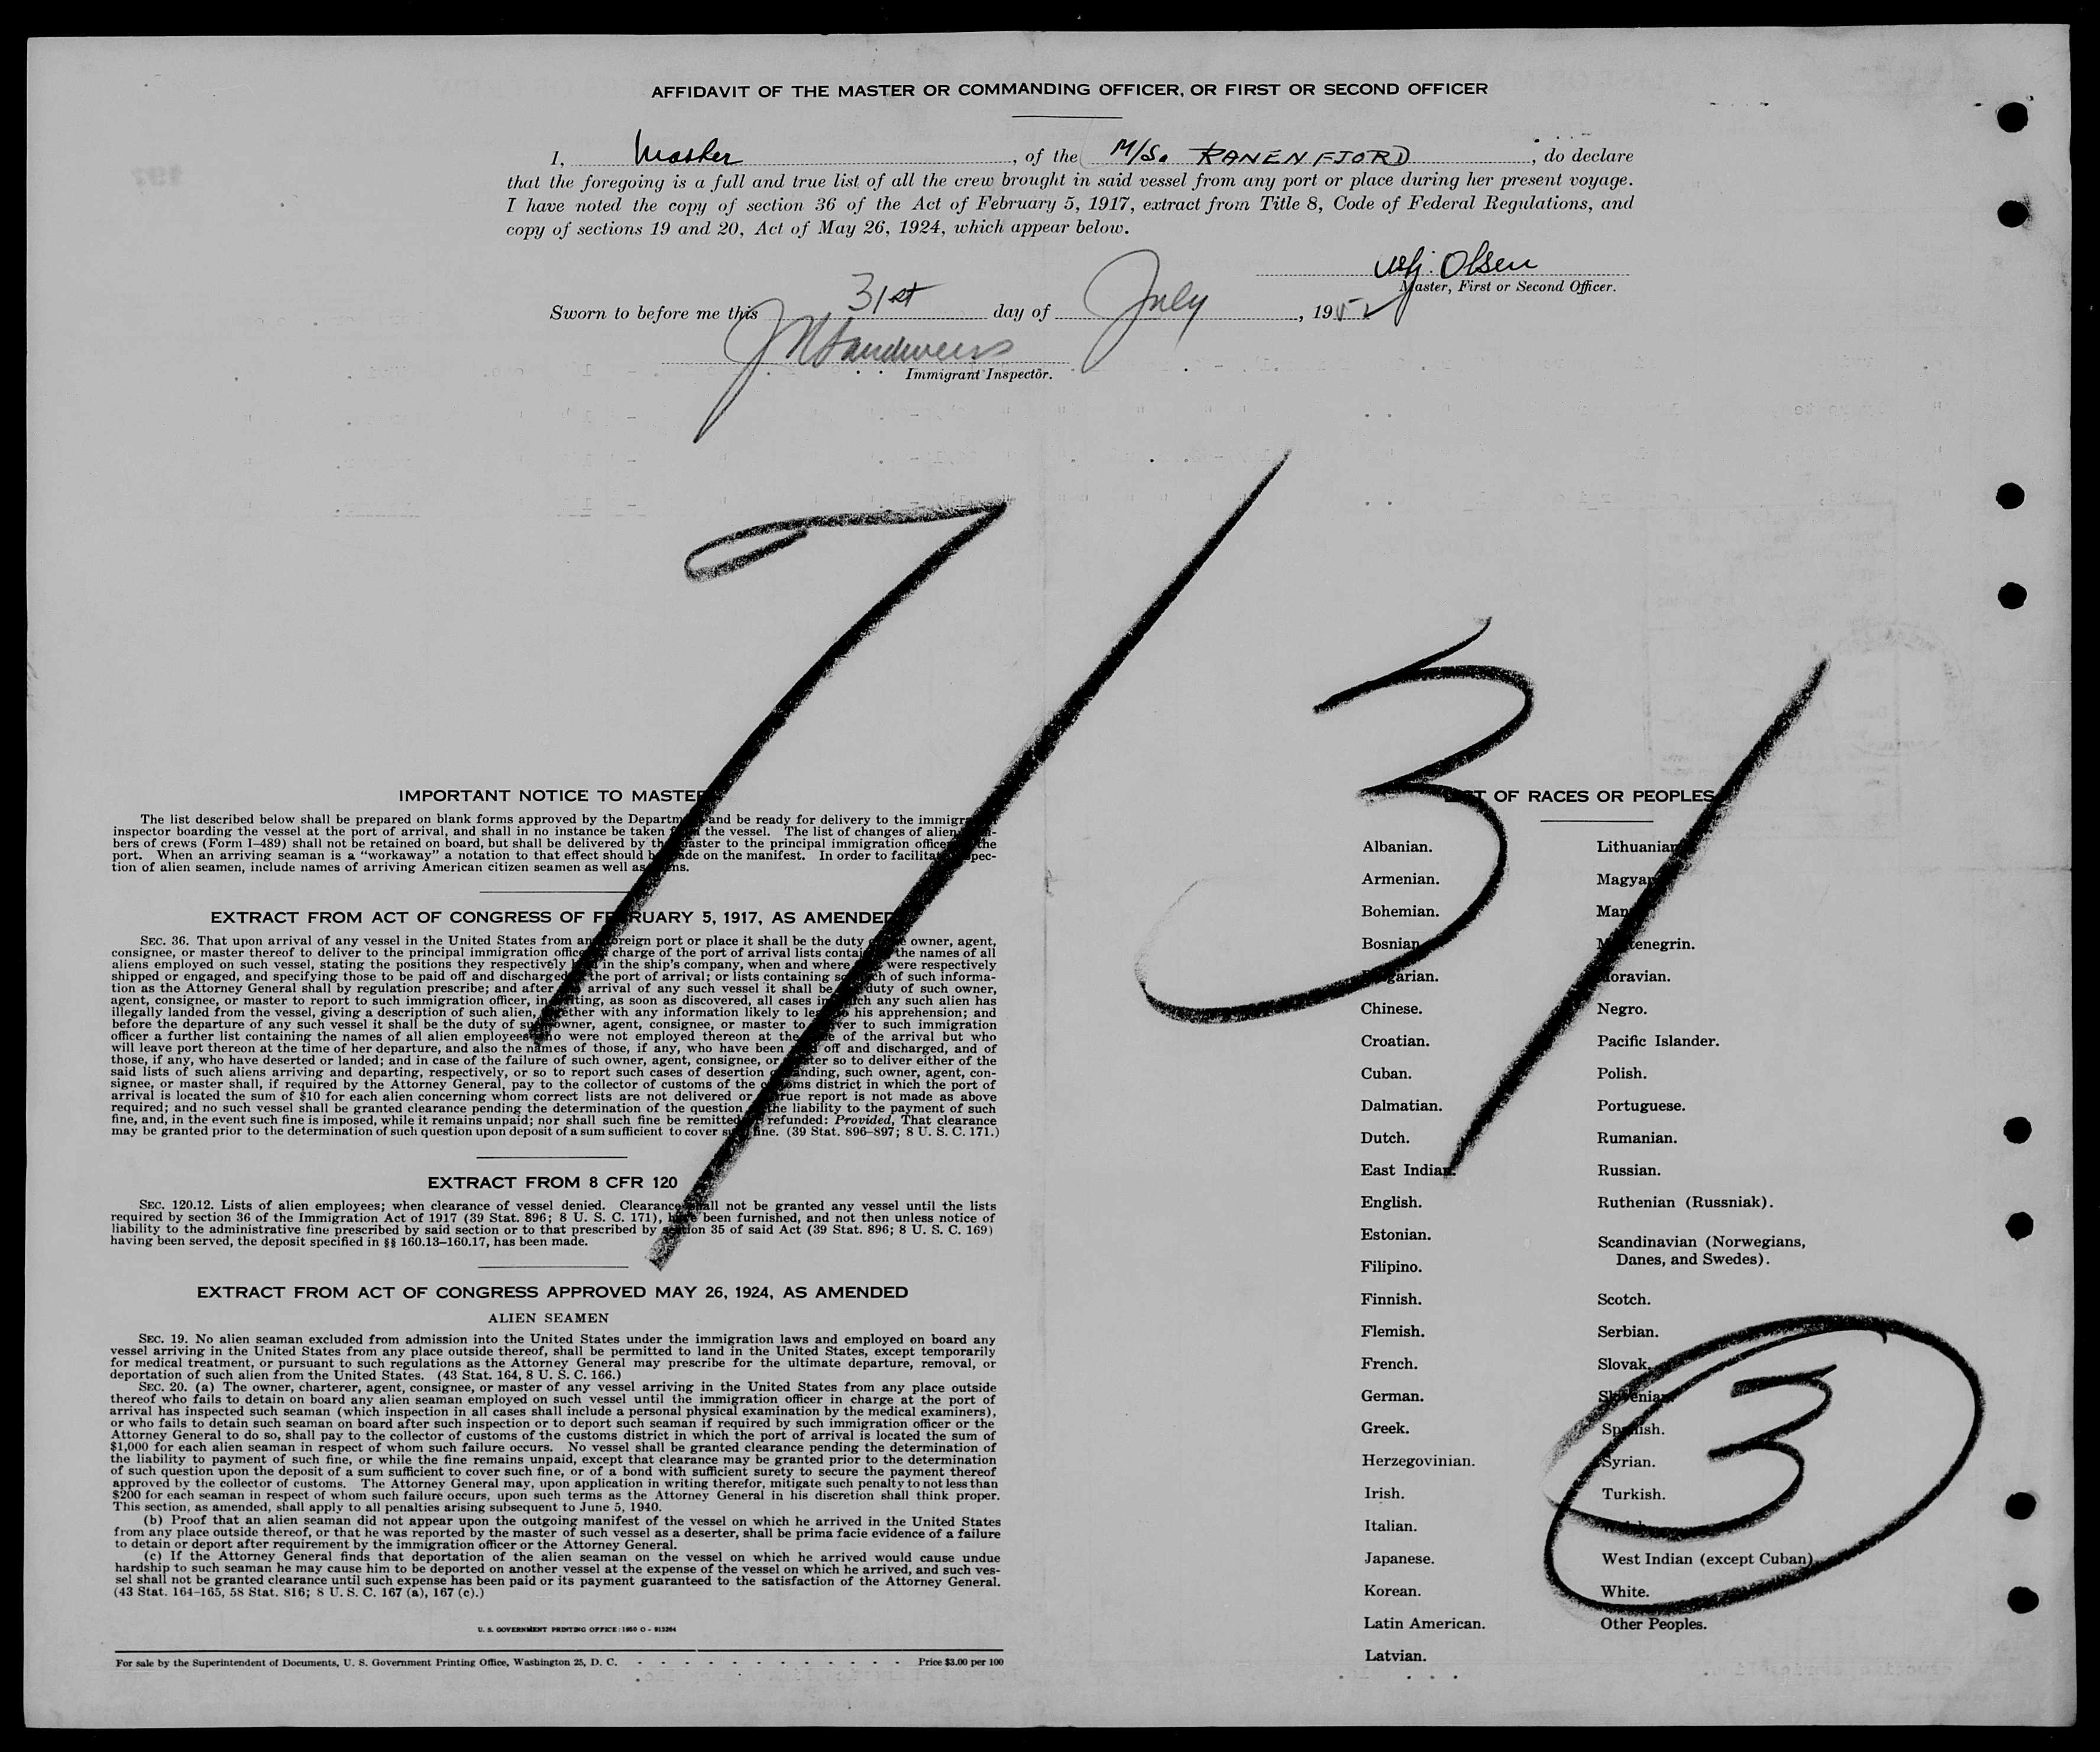 AFFIDAVIT OF THE MASTER OR COMMANDING OFFICER, OR FIRST OR SECOND OFFICER
I, Master, of the M/S. RANENFJORD, do declare
that the foregoing is a full and true list of all the crew brought in said vessel from any port or place during her present voyage.
I have noted the copy of section 36 of the Act of February 5, 1917, extract from Title 8, Code of Federal Regulations, and
copy of sections 19 and 20, Act of May 26, 1924, which appear below.
Olsen
Master, First or Second Officer.
Sworn to before me this 31st day of July, 1952
Immigrant Inspector.
7/31
IMPORTANT NOTICE TO MASTER
The list described below shall be prepared on blank forms approved by the Department and be ready for delivery to the immigrant
inspector boarding the vessel at the port of arrival, and shall in no instance be taken from the vessel. The list of changes of alien mem-
bers of crews (Form I-489) shall not be retained on board, but shall be delivered by the master to the principal immigration officer at the
port. When an arriving seaman is a "workaway" a notation to that effect should be made on the manifest. In order to facilitate inspec-
tion of alien seamen, include names of arriving American citizen seamen as well as aliens.
EXTRACT FROM ACT OF CONGRESS OF FEBRUARY 5, 1917, AS AMENDED
SEC. 36. That upon arrival of any vessel in the United States from any foreign port or place it shall be the duty of the owner, agent,
consignee, or master thereof to deliver to the principal immigration officer in charge of the port of arrival lists containing the names of all
aliens employed on such vessel, stating the positions they respectively hold in the ship's company, when and where they were respectively
shipped or engaged, and specifying those to be paid off and discharged in the port of arrival; or lists containing so much of such informa-
tion as the Attorney General shall by regulation prescribe; and after the arrival of any such vessel it shall be the duty of such owner,
agent, consignee, or master to report to such immigration officer, in writing, as soon as discovered, all cases in which any such alien has
illegally landed from the vessel, giving a description of such alien, together with any information likely to lead to his apprehension; and
before the departure of any such vessel it shall be the duty of such owner, agent, consignee, or master to deliver to such immigration
officer a further list containing the names of all alien employees who were not employed thereon at the time of the arrival but who
will leave port thereon at the time of her departure, and also the names of those, if any, who have been paid off and discharged, and of
those, if any, who have deserted or landed; and in case of the failure of such owner, agent, consignee, or master so to deliver either of the
said lists of such aliens arriving and departing, respectively, or so to report such cases of desertion or landing, such owner, agent, con-
signee, or master shall, if required by the Attorney General, pay to the collector of customs of the customs district in which the port of
arrival is located the sum of $10 for each alien concerning whom correct lists are not delivered or a true report is not made as above
required; and no such vessel shall be granted clearance pending the determination of the question of the liability to the payment of such
fine, and, in the event such fine is imposed, while it remains unpaid; nor shall such fine be remitted or refunded: Provided, That clearance
may be granted prior to the determination of such question upon deposit of a sum sufficient to cover such fine. (39 Stat. 896-897; 8 U. S. C. 171.)
EXTRACT FROM 8 CFR 120
SEC. 120.12. Lists of alien employees; when clearance of vessel denied. Clearance shall not be granted any vessel until the lists
required by section 36 of the Immigration Act of 1917 (39 Stat. 896; 8 U. S. C. 171), have been furnished, and not then unless notice of
liability to the administrative fine prescribed by said section or to that prescribed by section 35 of said Act (39 Stat. 896; 8 U. S. C. 169)
having been served, the deposit specified in §§ 160.13-160.17, has been made.
EXTRACT FROM ACT OF CONGRESS APPROVED MAY 26, 1924, AS AMENDED
ALIEN SEAMEN
SEC. 19. No alien seaman excluded from admission into the United States under the immigration laws and employed on board any
vessel arriving in the United States from any place outside thereof, shall be permitted to land in the United States, except temporarily
for medical treatment, or pursuant to such regulations as the Attorney General may prescribe for the ultimate departure, removal, or
deportation of such alien from the United States. (43 Stat. 164, 8 U. S. C. 166.)
SEC. 20. (a) The owner, charterer, agent, consignee, or master of any vessel arriving in the United States from any place outside
thereof who fails to detain on board any alien seaman employed on such vessel until the immigration officer in charge at the port of
arrival has inspected such seaman (which inspection in all cases shall include a personal physical examination by the medical examiners),
or who fails to detain such seaman on board after such inspection or to deport such seaman if required by such immigration officer or the
Attorney General to do so, shall pay to the collector of customs of the customs district in which the port of arrival is located the sum of
$1,000 for each alien seaman in respect of whom such failure occurs. No vessel shall be granted clearance pending the determination of
the liability to payment of such fine, or while the fine remains unpaid, except that clearance may be granted prior to the determination
of such question upon the deposit of a sum sufficient to cover such fine, or of a bond with sufficient surety to secure the payment thereof
approved by the collector of customs. The Attorney General may, upon application in writing therefor, mitigate such penalty to not less than
$200 for each seaman in respect of whom such failure occurs, upon such terms as the Attorney General in his discretion shall think proper.
This section, as amended, shall apply to all penalties arising subsequent to June 5, 1940.
(b) Proof that an alien seaman did not appear upon the outgoing manifest of the vessel on which he arrived in the United States
from any place outside thereof, or that he was reported by the master of such vessel as a deserter, shall be prima facie evidence of a failure
to detain or deport after requirement by the immigration officer or the Attorney General.
(c) If the Attorney General finds that deportation of the alien seaman on the vessel on which he arrived would cause undue
hardship to such seaman he may cause him to be deported on another vessel at the expense of the vessel on which he arrived, and such ves-
sel shall not be granted clearance until such expense has been paid or its payment guaranteed to the satisfaction of the Attorney General.
(43 Stat. 164-165, 58 Stat. 816; 8 U. S. C. 167 (a), 167 (c).)
U. S. GOVERNMENT PRINTING OFFICE : 1950 O - 913264
For sale by the Superintendent of Documents, U. S. Government Printing Office, Washington 25, D. C. - - - - - - - - - - - - Price $3.00 per 100
LIST OF RACES OR PEOPLES
Albanian.
Armenian.
Bohemian.
Bosnian.
Bulgarian.
Chinese.
Croatian.
Cuban.
Dalmatian.
Dutch.
East Indian.
English.
Estonian.
Filipino.
Finnish.
Flemish.
French.
German.
Greek.
Herzegovinian.
Irish.
Italian.
Japanese.
Korean.
Latin American.
Latvian.
Lithuanian.
Magyar.
Manx.
Montenegrin.
Moravian.
Negro.
Pacific Islander.
Polish.
Portuguese.
Rumanian.
Russian.
Ruthenian (Russniak).
Scandinavian (Norwegians,
Danes, and Swedes).
Scotch.
Serbian.
Slovak.
Slovenian.
Spanish.
Syrian.
Turkish.
Welsh.
West Indian (except Cuban).
White.
Other Peoples.
3